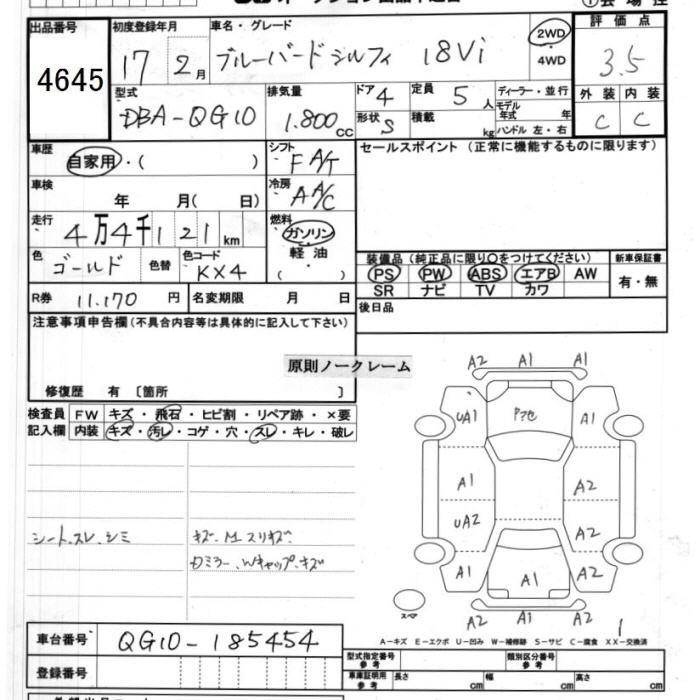 出品番号
4645
初度登録年月
17 2月
車名・グレード
ブルーバードシルフィ 18Vi
2WD
・
4WD
評価点
3.5
外装 内装
C C
型式
DBA-QG10
排気量
1.800cc
ドア 4
形状 S
定員 5人
積載 kg
ディーラー・並行
モデル年式 年
ハンドル 左・右
車歴
自家用・( )
シフト
F A/T
セールスポイント(正常に機能するものに限ります)
車検
年 月( 日)
冷房
A A/C
走行
4万4千121km
燃料
ガソリン
・
軽油
色
ゴールド
色替
色コード
KX4
装備品(純正品に限り○をつけてください)
PS PW ABS エアB AW
SR ナビ TV カワ
新車保証書
有・無
R券 11.170円
名変期限 月 日
後日品
注意事項申告欄(不具合内容等は具体的に記入して下さい)
原則ノークレーム
修復歴 有 〔箇所 〕
検査員記入欄
FW キズ・飛石・ヒビ割・リペア跡・×要
内装 キズ・汚レ・コゲ・穴・スレ・キレ・破レ
シートスレ、シミ
A2 A1 A1
UA1 A1
A1 A2
UA2 A2
A1 A1 A2
A2 A1 A2
スペア
A−キズ E−エクボ U−凹み W−補修跡 S−サビ C−腐食 XX−交換済
車台番号 QG10-185454
登録番号
型式指定番号
参考
類別区分番号
参考
車庫証明用
参考
長さ cm 幅 cm 高さ cm